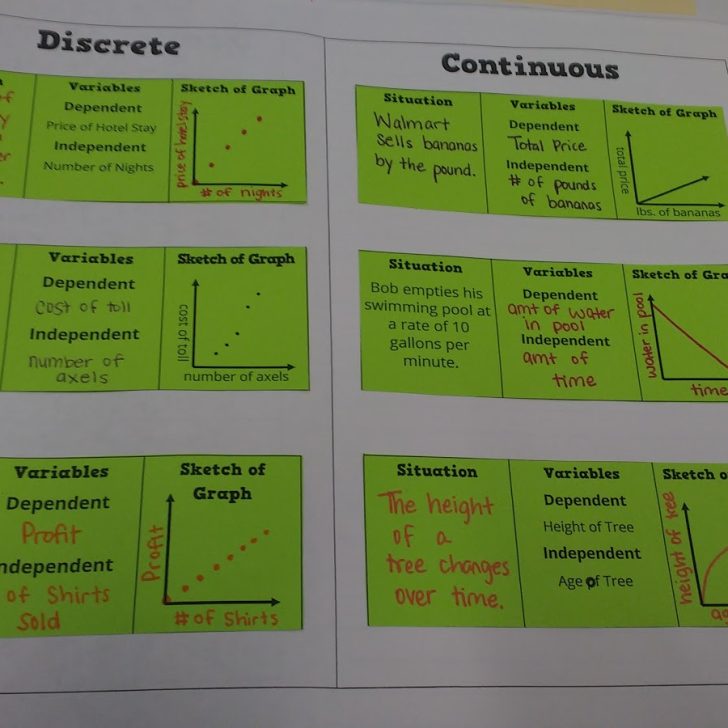 Discrete
Variables
Dependent
Price of Hotel Stay
Independent
Number of Nights
Sketch of Graph
price of hotel stay
# of nights
Variables
Dependent
cost of toll
Independent
number of
axels
Sketch of Graph
cost of toll
number of axels
Variables
Dependent
Profit
ndependent
of Shirts
Sold
Sketch of
Graph
Profit
# of Shirts
Continuous
Situation
Walmart
sells bananas
by the pound.
Variables
Dependent
Total Price
Independent
# of pounds
of bananas
Sketch of Graph
total price
lbs. of bananas
Situation
Bob empties his
swimming pool at
a rate of 10
gallons per
minute.
Variables
Dependent
amt of water
in pool
Independent
amt of
time
Sketch of Gra
water in pool
time
Situation
The height
of a
tree changes
over time.
Variables
Dependent
Height of Tree
Independent
Age of Tree
Sketch o
height of tree
ag